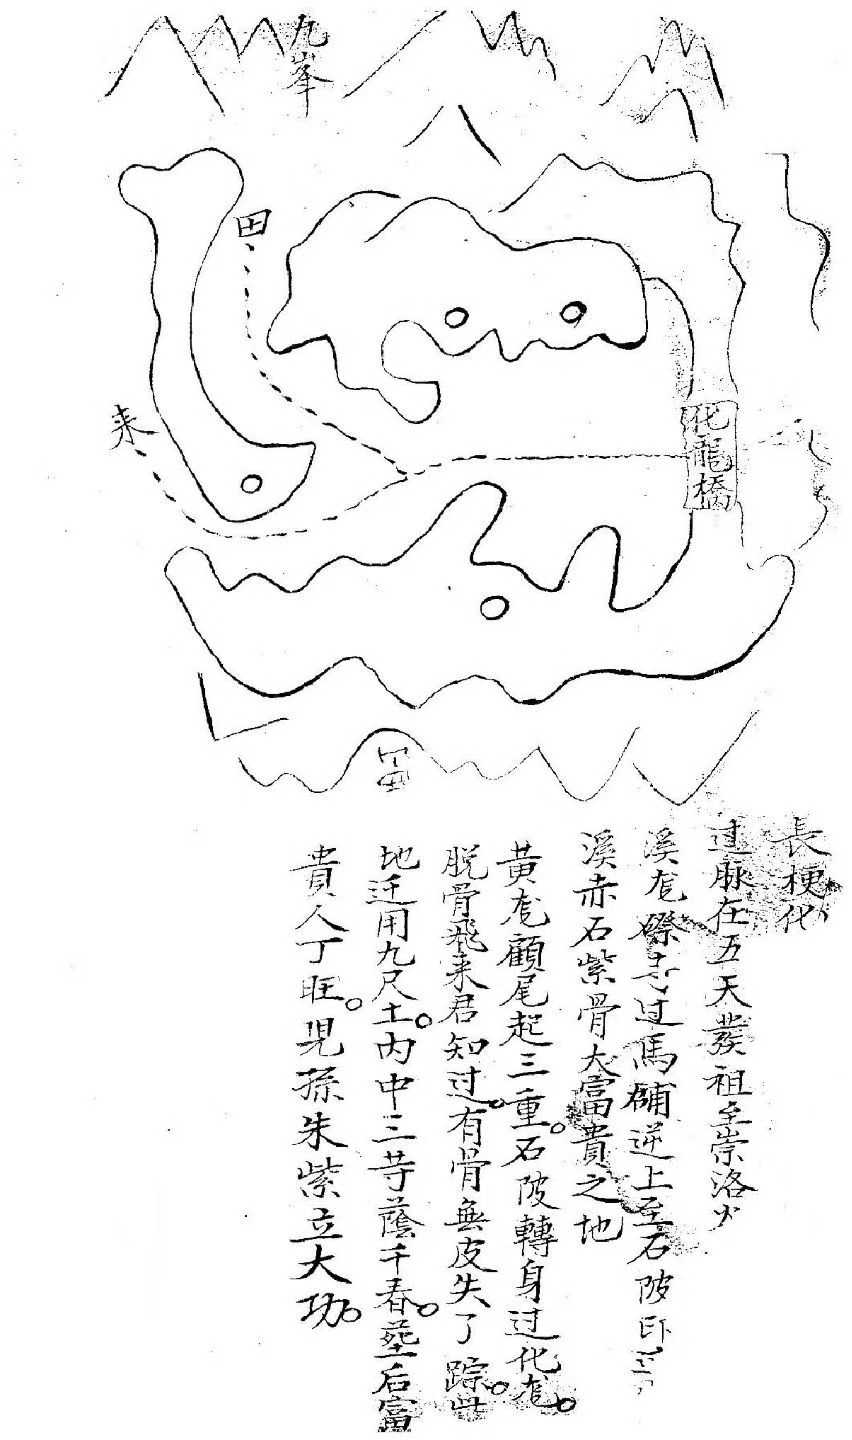 九峯
田
来
化龍橋
長梗化
過脉在五天發祖至崇洛
溪尨磜寺过馬鋪逆上至石陂
溪赤石紫骨大富貴之地
黄尨顧尾起三重。石陂轉身过化尨。
脱骨飛来君知过。有骨無皮失了踪。此
地迁用九尺土。内中三芽蔭千春。塟后富
貴人丁旺。児孫朱紫立大功。